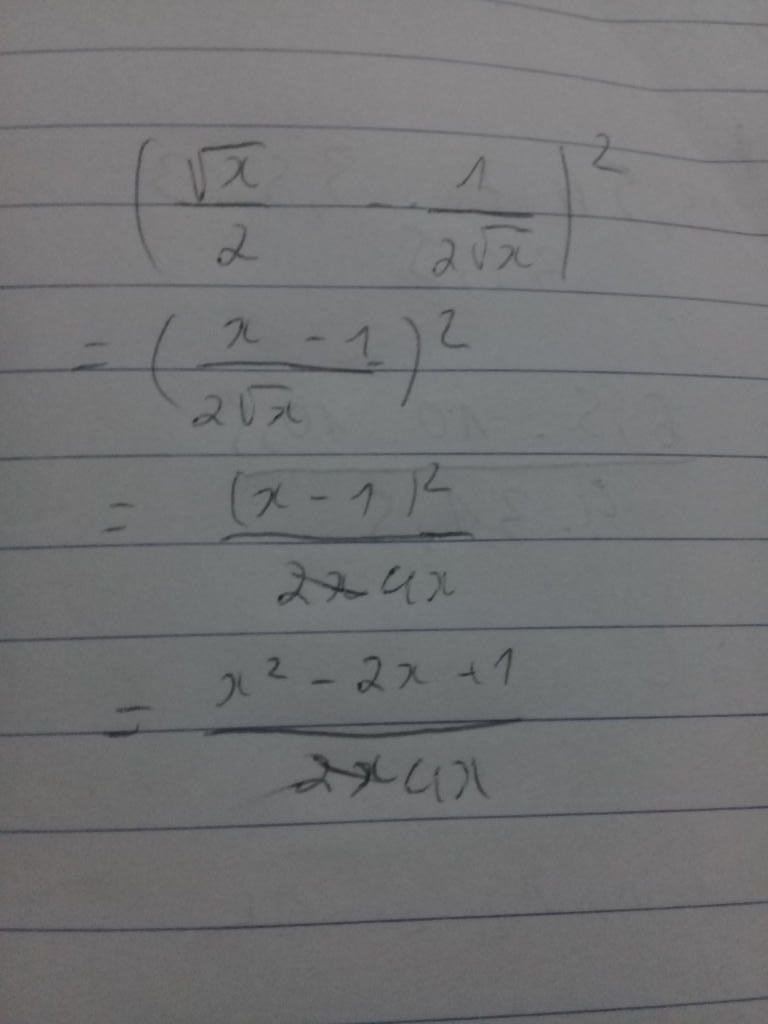 (√x/2 - 1/(2√x))²
= ((x - 1)/(2√x))²
= (x - 1)²/(4x)
= (x² - 2x + 1)/(4x)